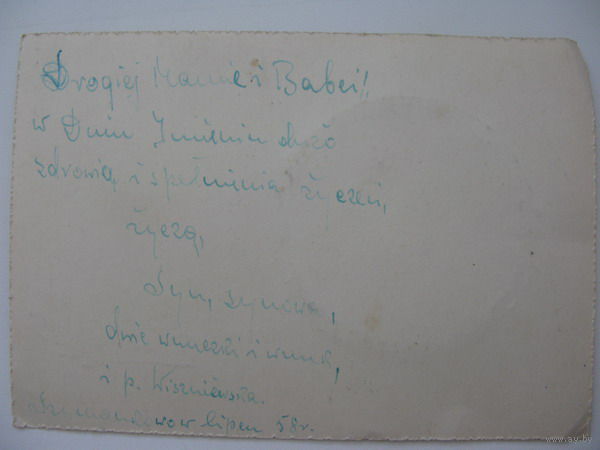 Drogiej Mamie i Babci!!
w Dniu Imienin dużo
zdrowia i spełnienia życzeń,
życzą,
Syn, synowa,
dwie wnuczki i wnuk,
i p. Wiszniewska.
lipiec 58r.
www.ay.by